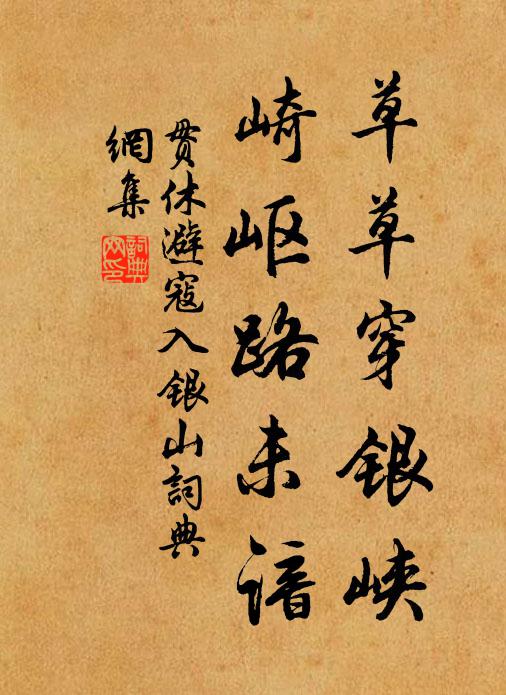 草草穿銀峽
崎岖路未谙
贯休避寇入银山詞典
網集
詞典
网印